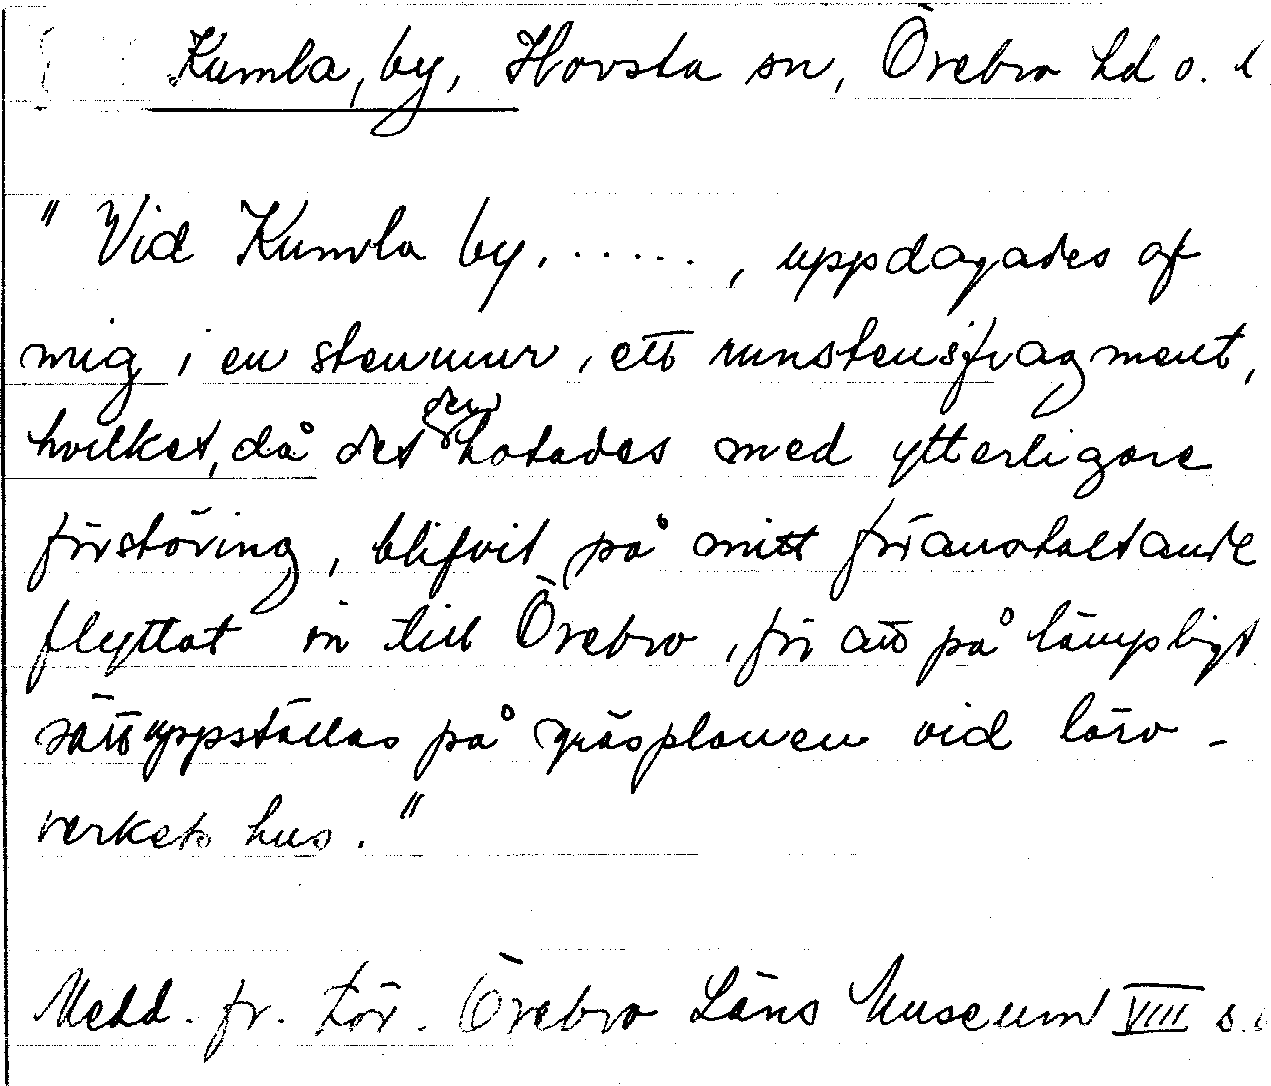 Kumla, by, Hovsta sn, Örebro hd o. l
" Vid Kumla by, ....., uppdagades af
mig i en stenmur, ett runstensfragment,
hvilket, då det der hotades med ytterligare
förstöring, blifvit på mitt föranstaltande
flyttat in till Örebro, för att på lämpligt
sätt uppställas på gräsplanen vid läro-
verkets hus."
Medd. fr. för. Örebro Läns Museum VIII s.